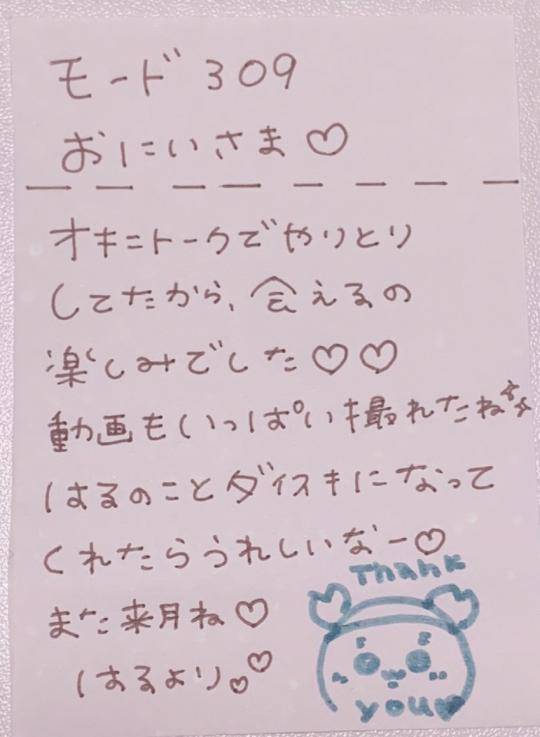 モード309
おにいさま♡
オキニトークでやりとり
してたから、会えるの
楽しみでした♡♡
動画もいっぱい撮れたね✨
はるのことダイスキになって
くれたらうれしいなー♡
また来月ね♡
はるより♡♡
Thank
you♥